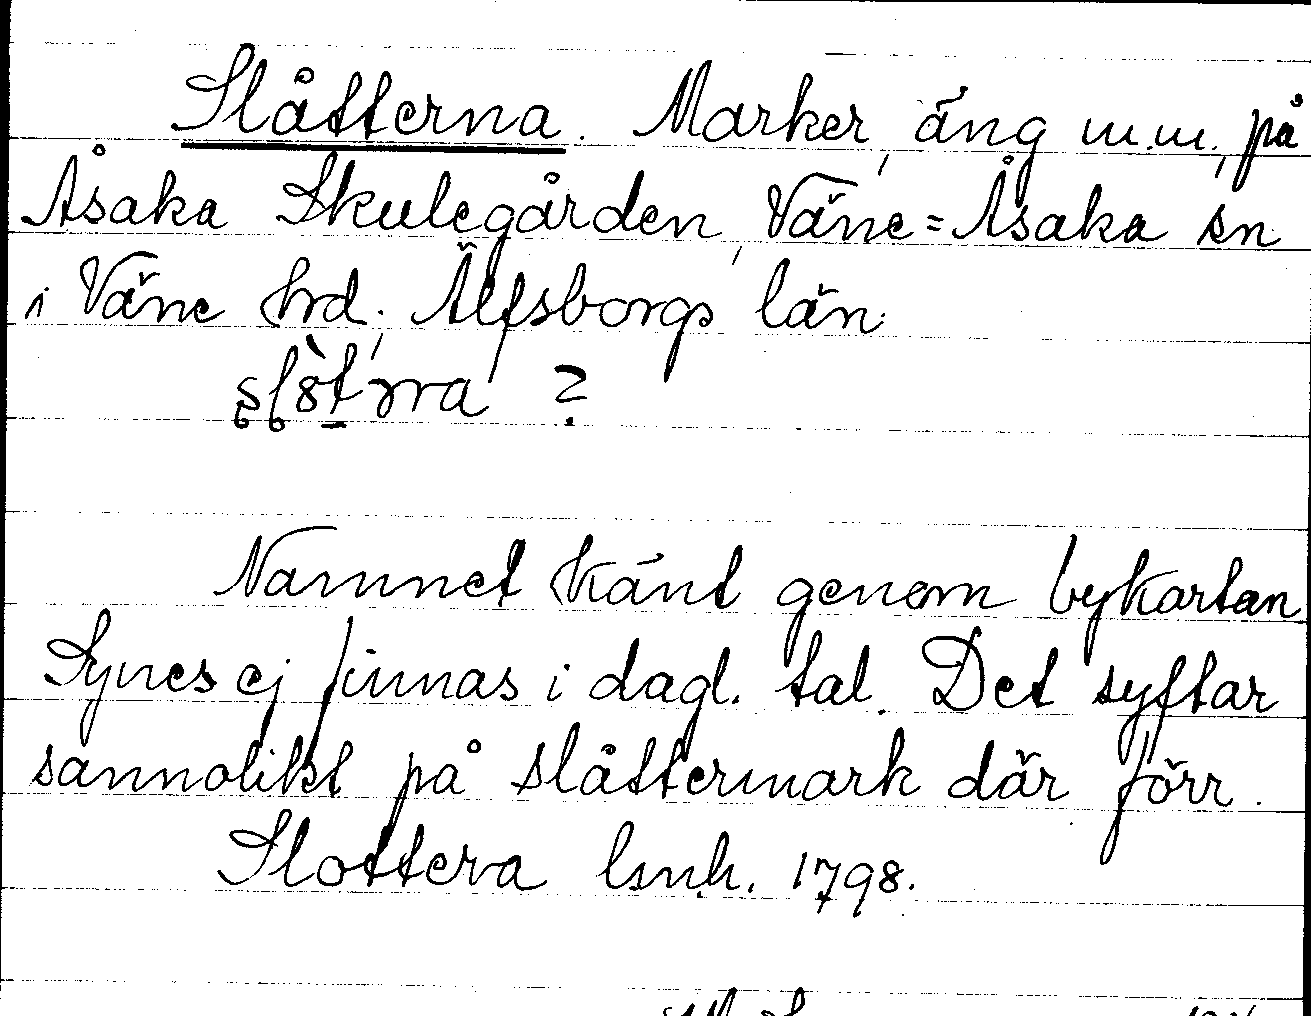 Slåtterna. Marker, äng m.m., på
Åsaka Skulegården, Väne=Åsaka sn
i Väne hrd, Älfsborgs län.
?
Namnet känt genom bykartan
Synes ej finnas i dagl. tal. Det syftar
sannolikt på slåttermark där förr.
Slottera lmh. 1798.